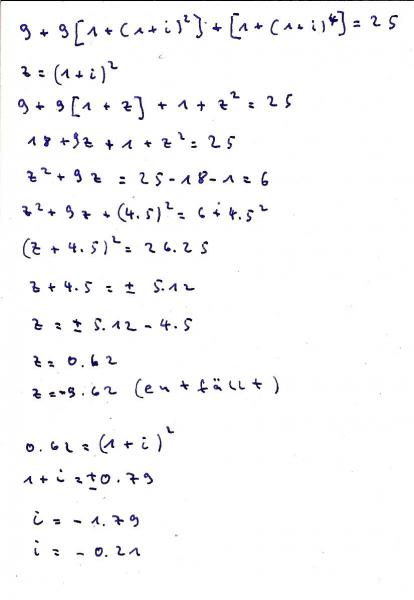 9 + 9[1 + (1+i)²] + [1 + (1+i)⁴] = 25
z = (1+i)²
9 + 9[1 + z] + 1 + z² = 25
18 + 9z + 1 + z² = 25
z² + 9z = 25 - 18 - 1 = 6
z² + 9z + (4.5)² = 6 + 4.5²
(z + 4.5)² = 26.25
z + 4.5 = ± 5.12
z = ± 5.12 - 4.5
z = 0.62
z = -9.62 (entfällt)
0.62 = (1+i)²
1 + i = ±0.79
i = - 1.79
i = - 0.21